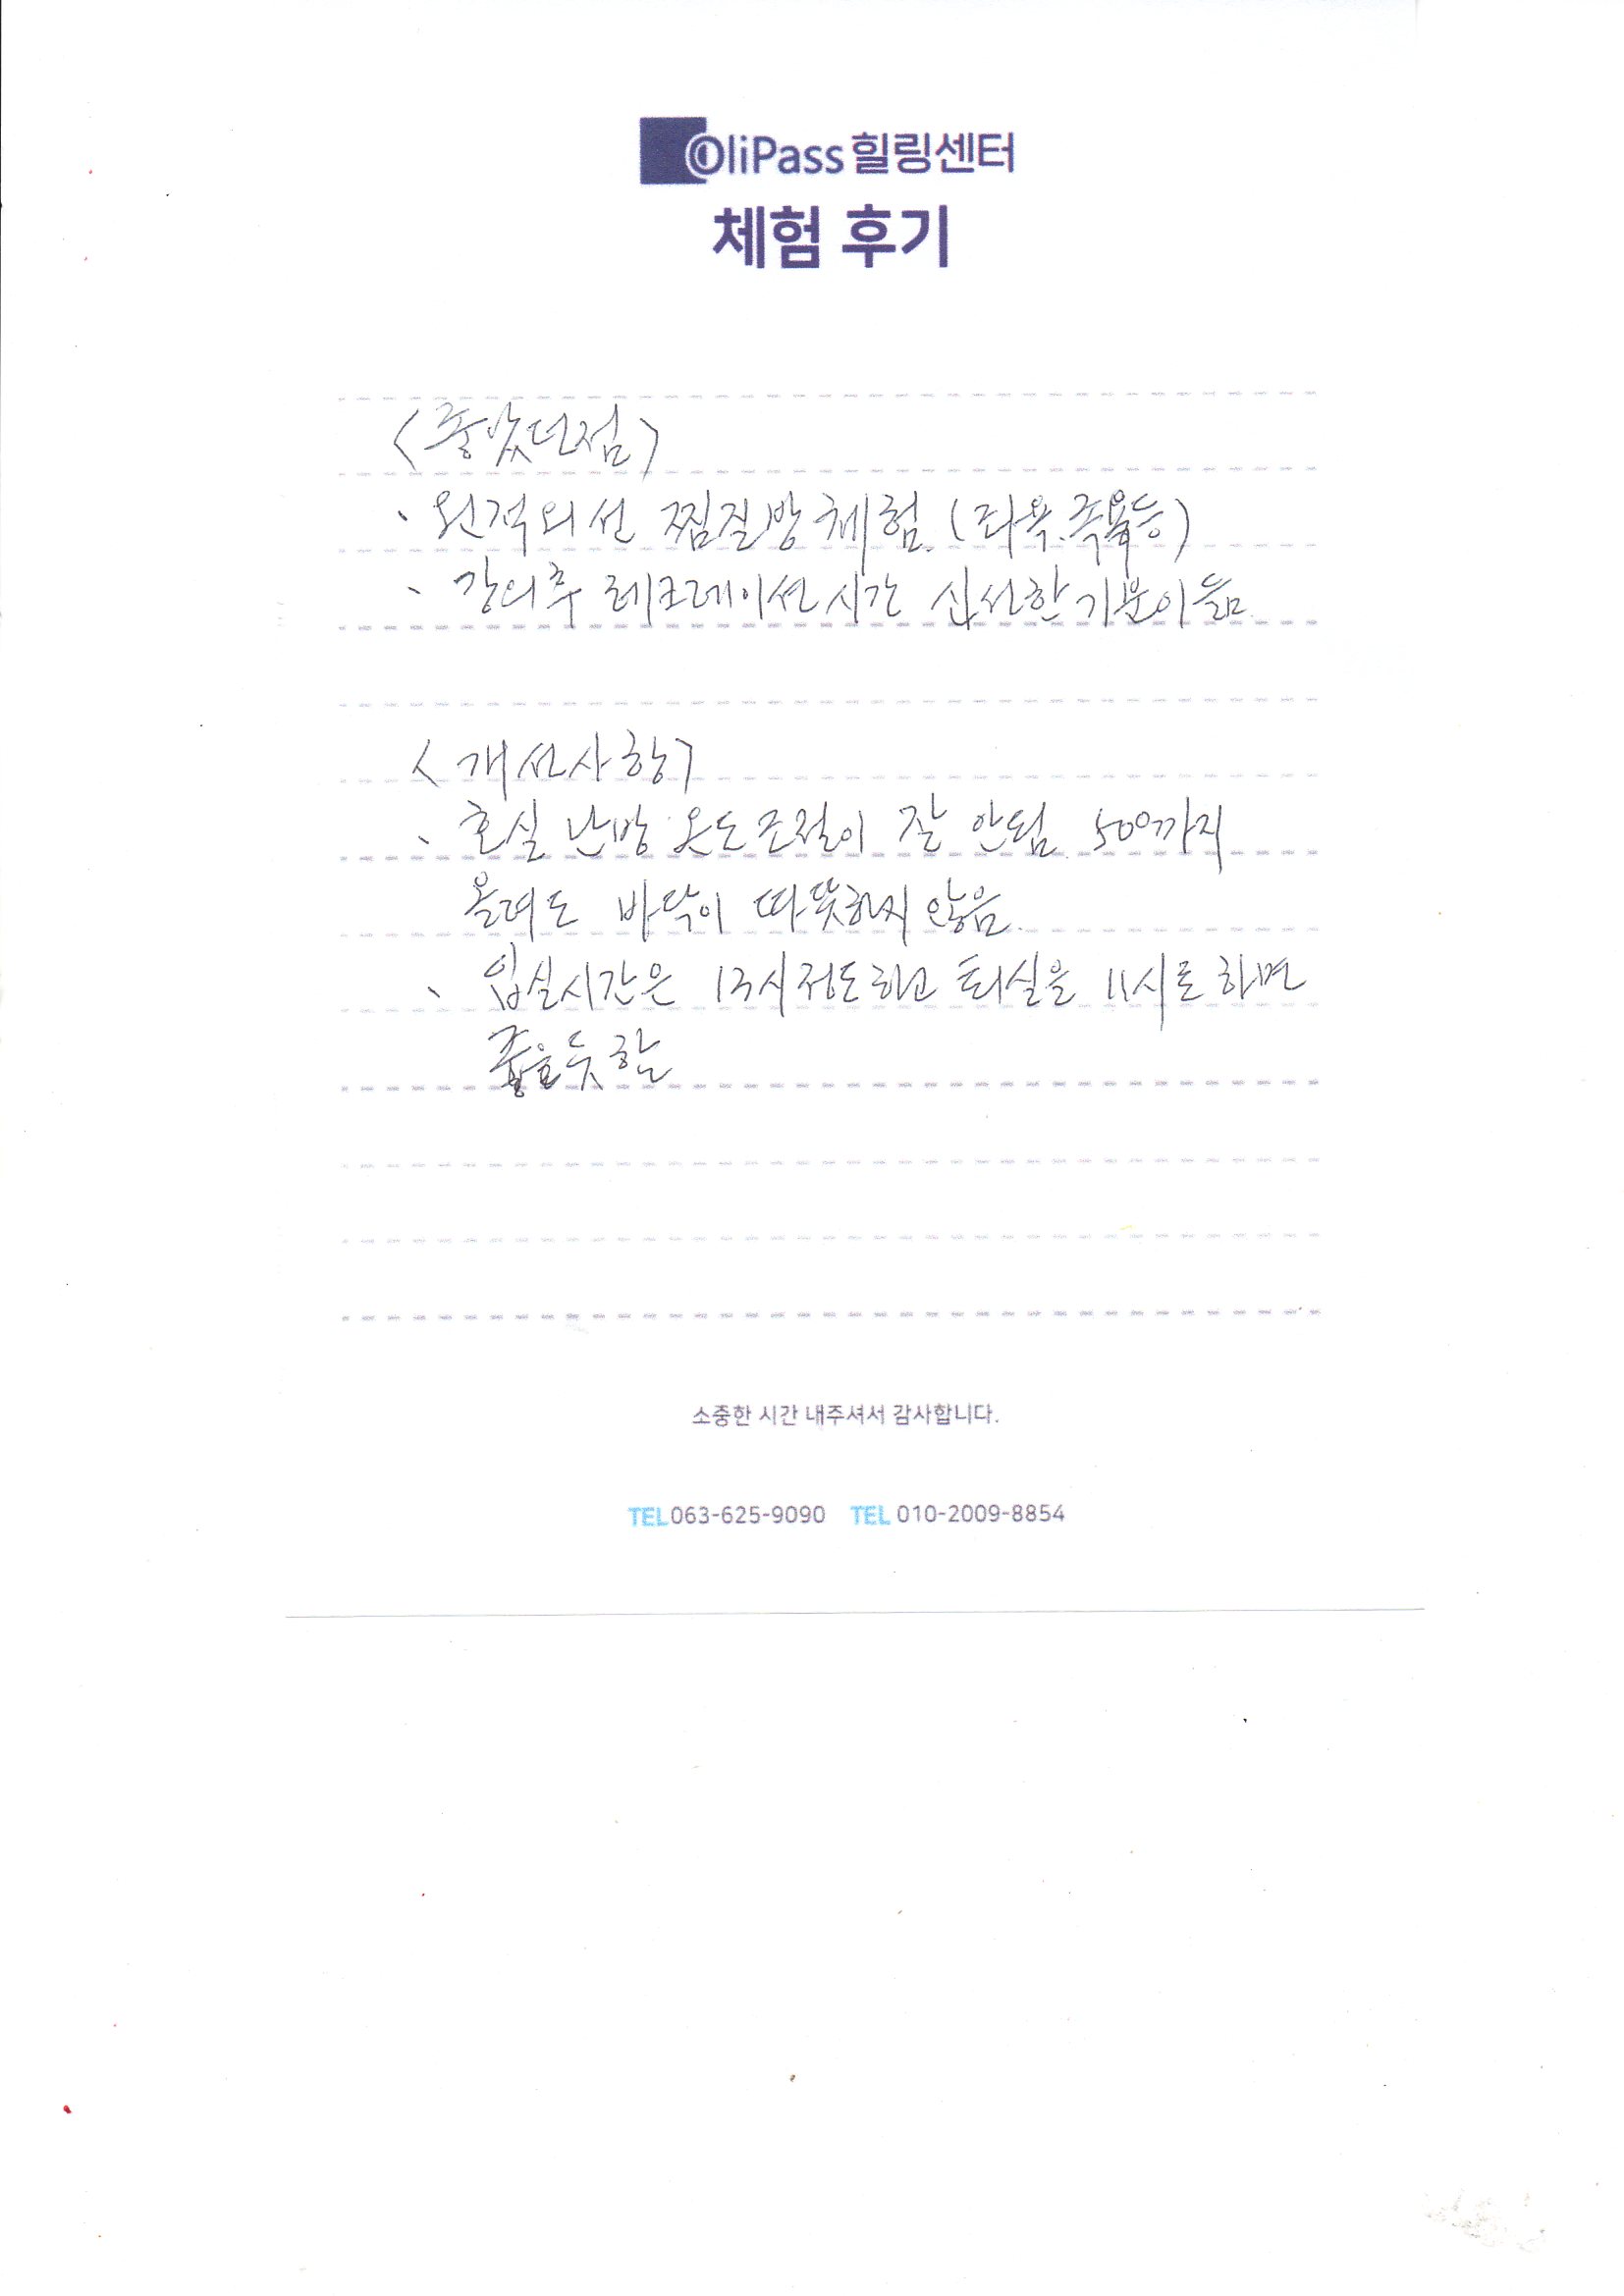 OliPass 힐링센터
체험 후기
<좋았던점>
· 원적외선 찜질방 체험. (좌욕.족욕등)
· 강의후 레크레이션시간 신선한 기분이듬.
<개선사항>
· 호실 난방 온도조절이 잘 안됨. 50º까지
올려도 바닥이 따뜻하지 않음.
· 입실시간은 13시정도하고 퇴실을 11시로 하면
좋을듯 함
소중한 시간 내주셔서 감사합니다.
TEL 063-625-9090 TEL 010-2009-8854